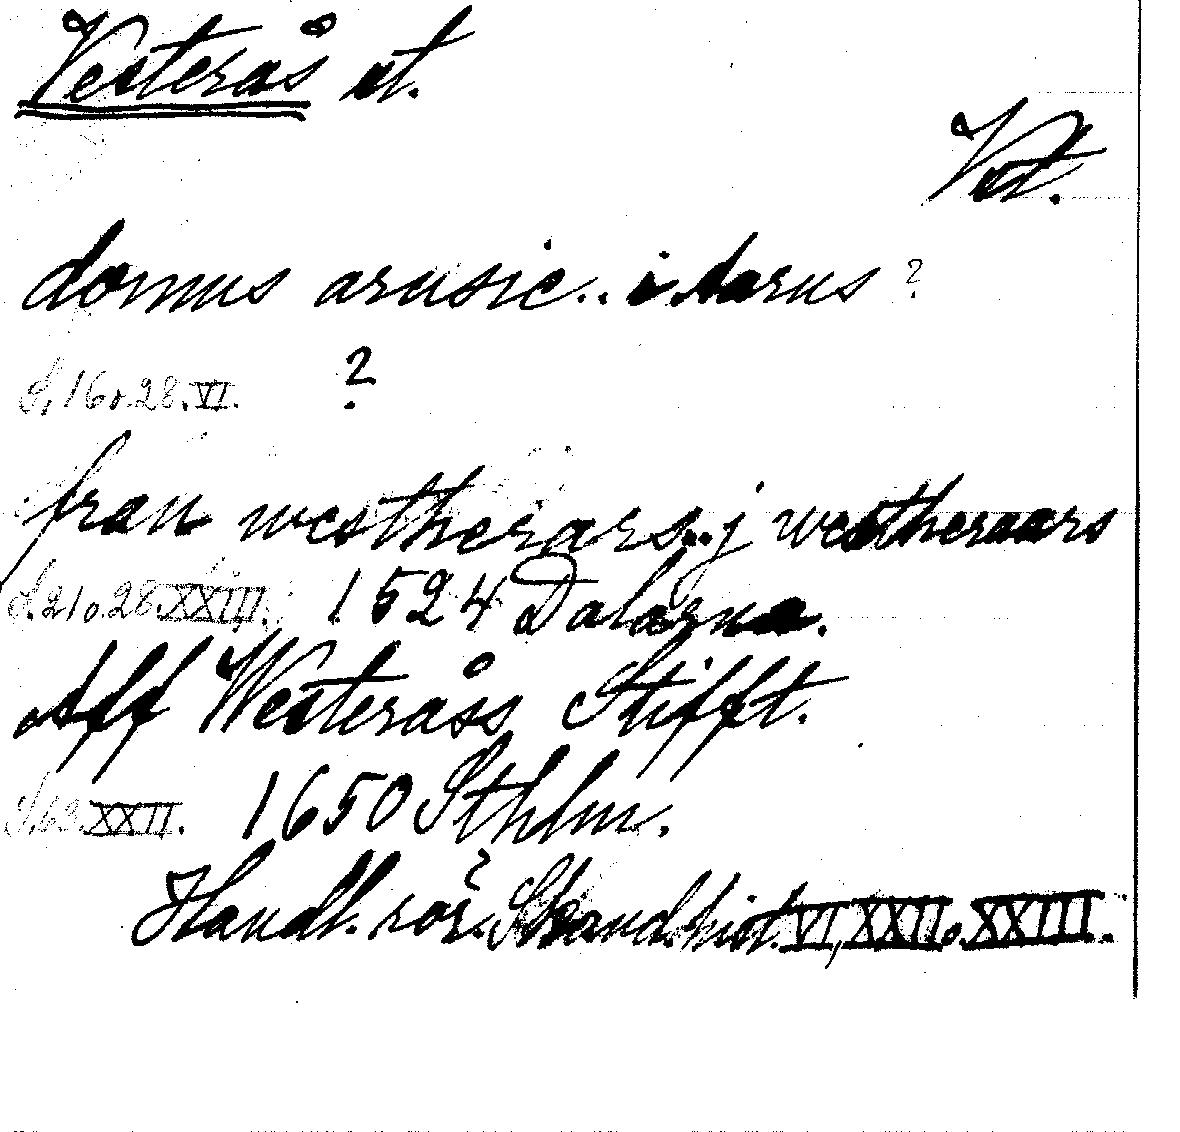 Vesterås st.
Vst.
domus arusie.. i Aarus ?
S. 16 o. 28. VI. ?
fran westherars.. j westheraars
S. 21 o. 28. XXIII. 1524 Dalarna.
Aff Westeråss Stifft.
S. 63. XXII. 1650 Sthlm.
Handl. rör. Skand. hist. VI, XXII o. XXIII.